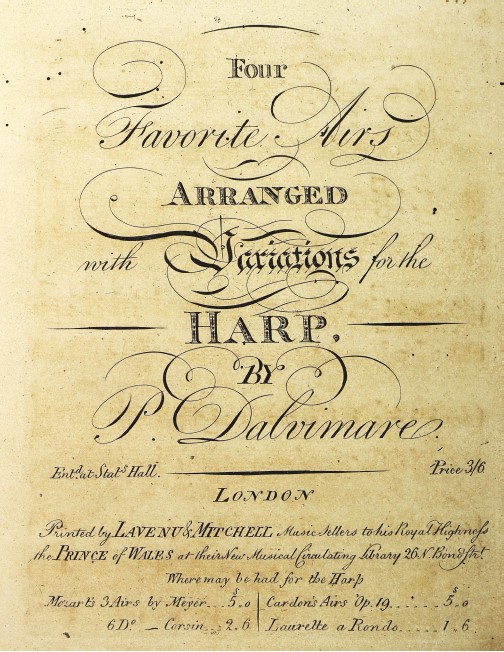 Four
Favorite Airs
ARRANGED
with Variations for the
HARP,
BY
P. Dalvimare.
Entd. at Stats. Hall. Price 3/6
LONDON
Printed by LAVENU & MITCHELL Music Sellers to his Royal Highness
the PRINCE of WALES at their New Musical Circulating Library 26 N. Bond Strt
Where may be had for the Harp
Mozart's 3 Airs by Meyer... 5s.0 | Cardon's Airs Op. 19...... 5s.0
6 Do. — Corsin... 2.6 | Laurette a Rondo.... 1.6